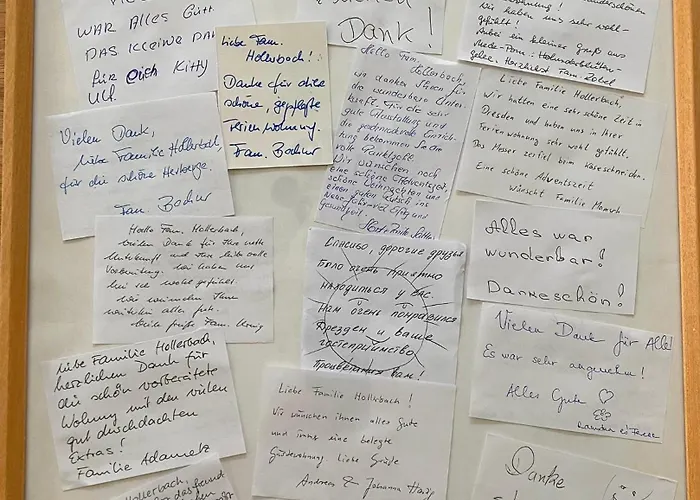 WAR ALLES GUTT
DAS KLEINE DAN
für euch KITTY
Ulf.
Liebe Fam.
Hollerbach!
Danke für die
schöne, gepflegte
Ferienwohnung.
Fam. Bochur
Dank!
Hallo Fam.
Hollerbach,
wir danken Ihnen für
die wunderbare Unter-
kunft. Für die sehr
gute Ausstattung und
die
volle Punktzahl.
Wir wünschen noch
eine schöne Adventszeit,
schöne Weihnachten und
einen guten Rutsch ins
neue Jahr
Gesundheit.
wohnung!
Wir haben uns sehr wohl-
gefühlt!
Anbei ein kleiner Gruß aus
Holunderblüten-
gelee. Herzlichst Fam. Zobel
Liebe Familie Hollerbach,
Wir hatten eine sehr schöne Zeit in
Dresden und haben uns in Ihrer
Ferienwohnung sehr wohl gefühlt.
Das Messer zerfiel beim Käseschneiden.
Eine schöne Adventszeit
wünscht Familie
Vielen Dank,
liebe Familie Hollerbach,
für die schöne Herberge.
Fam. Bochur
Hallo Fam. Hollerbach,
vielen Dank für Ihre nette
Unterkunft und Ihre liebevolle
Vorbereitung. Wir haben uns
bei Ihnen wohl gefühlt.
Wir wünschen Ihnen
weiterhin alles gute.
Liebe Grüße Fam. König
Спасибо, дорогие друзья
Было очень приятно
находиться у вас.
Нам очень понравился
Дрезден и ваше
гостеприимство.
Процветания вам!
Alles war
wunderbar!
Dankeschön!
Vielen Dank für Alles!
Es war sehr angenehm!
Alles Gute ♡
Liebe Familie Hollerbach,
herzlichen Dank für
die schön vorbereitete
Wohnung mit den vielen
gut durchdachten
Extras!
Familie Adametz
Liebe Familie Hollerbach!
Wir wünschen ihnen alles Gute
und immer eine belegte
Gästewohnung Liebe Grüße
Andreas & Johanna
Hollerbach,
Danke